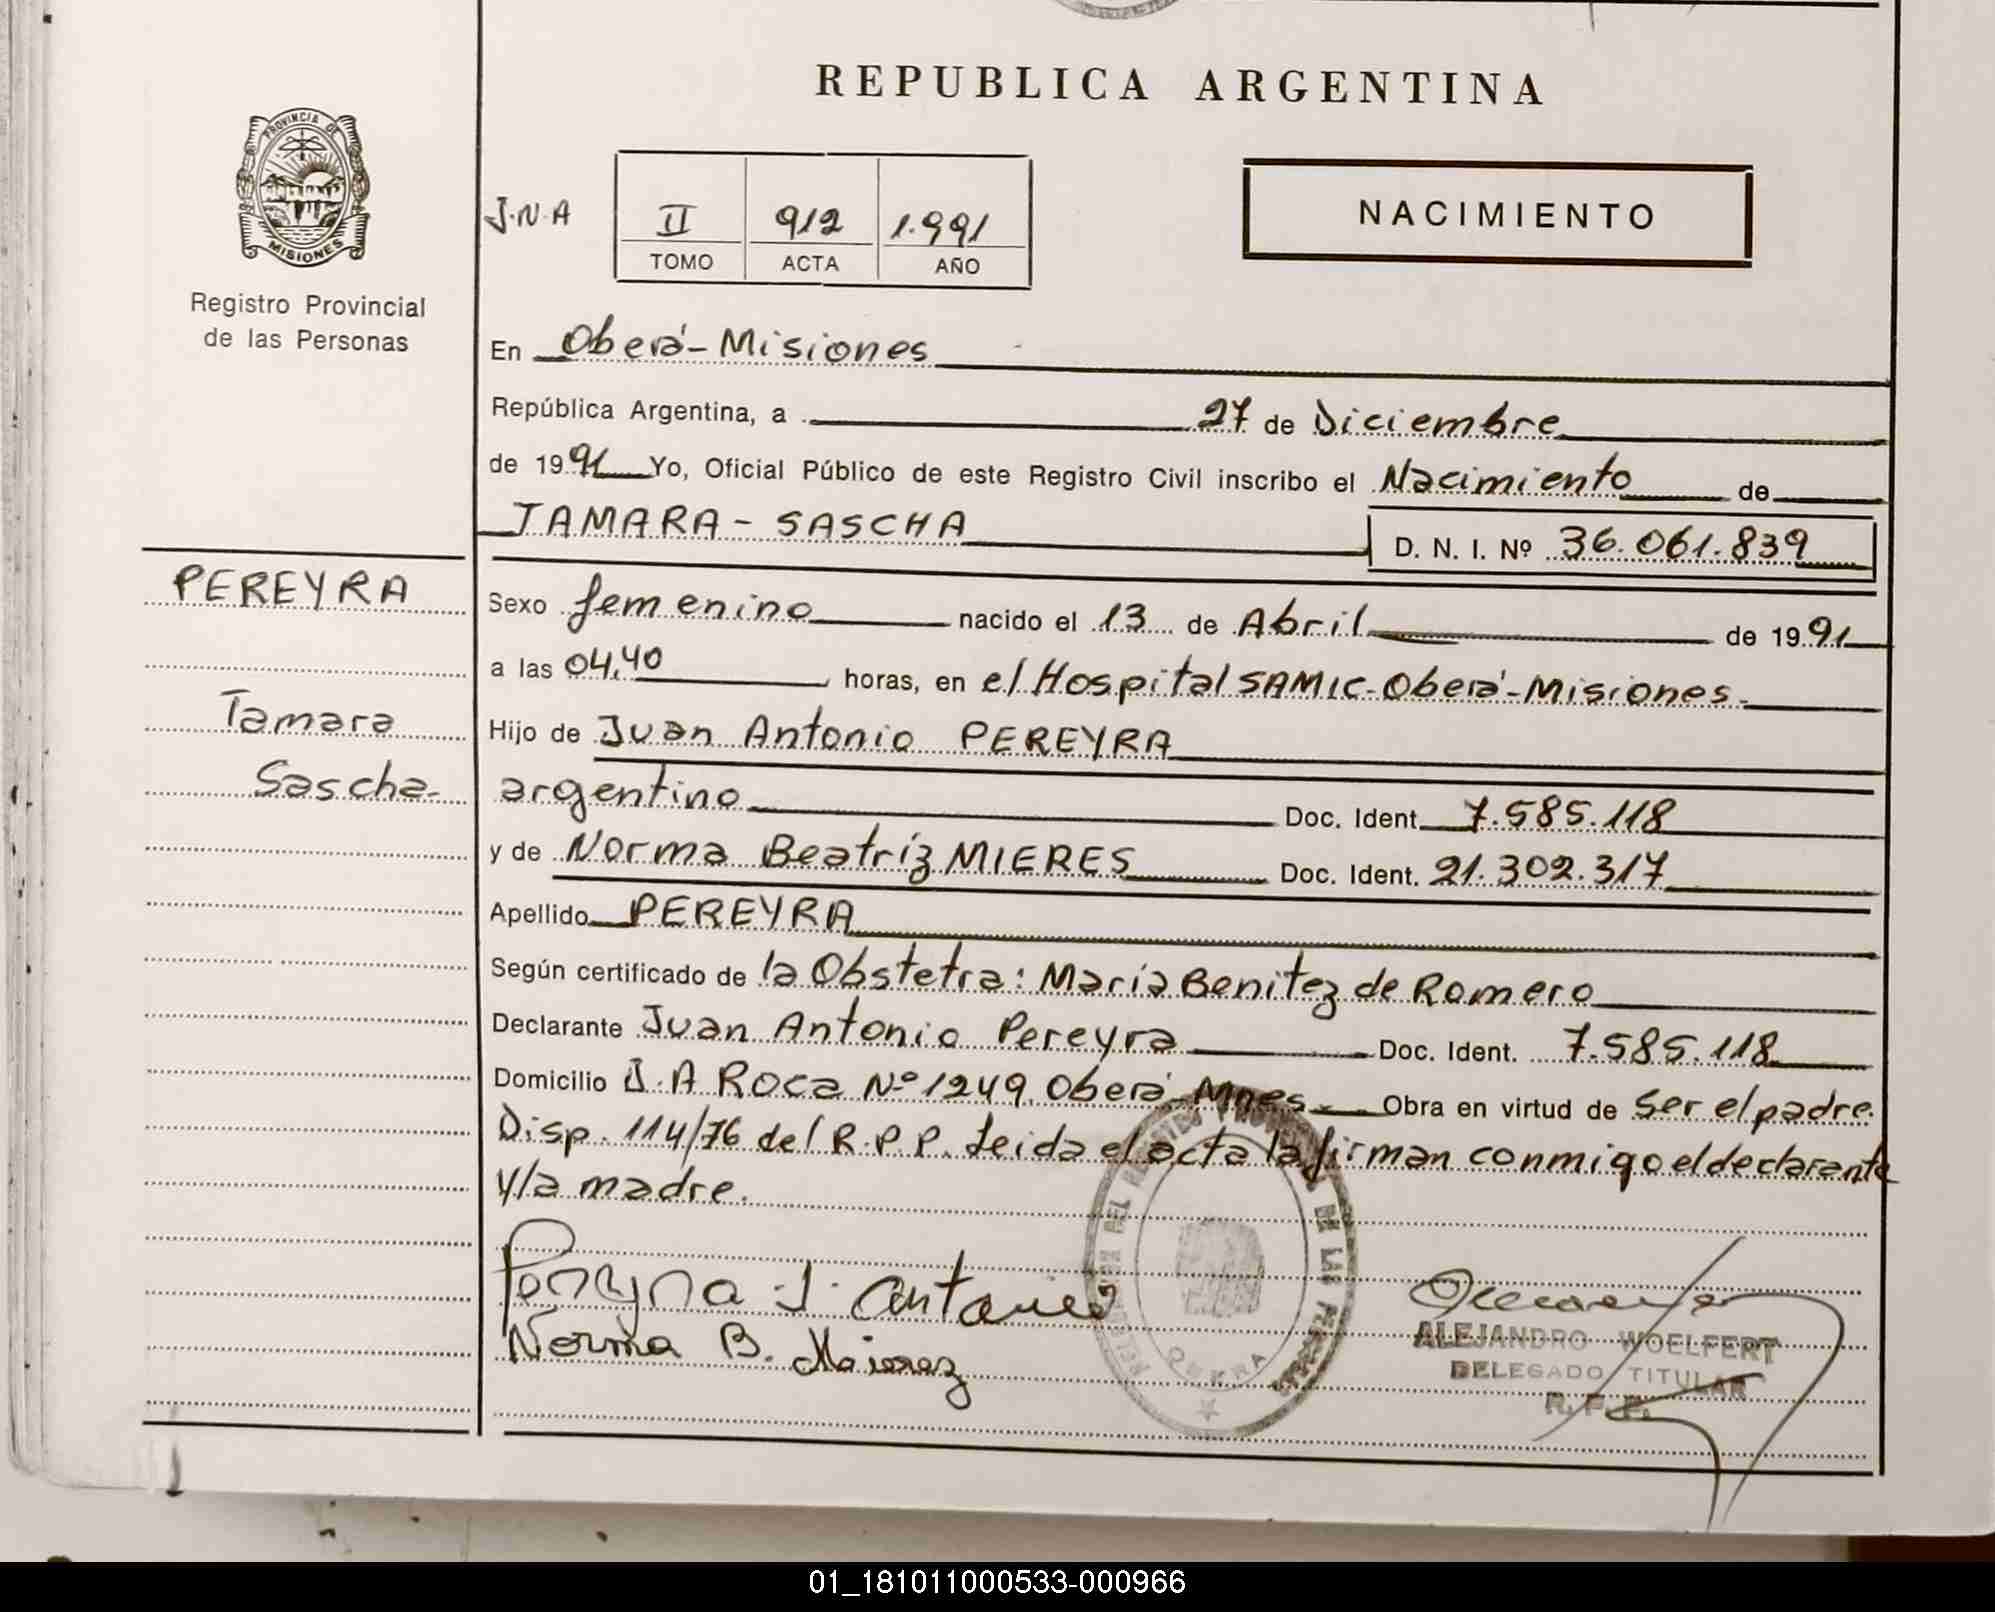 REPUBLICA ARGENTINA
PROVINCIA DE
MISIONES
Registro Provincial
de las Personas
J.N.A
II 912 1.991
TOMO ACTA AÑO
NACIMIENTO
En Oberá-Misiones
República Argentina, a 27 de Diciembre
de 1991 Yo, Oficial Público de este Registro Civil inscribo el Nacimiento de
TAMARA - SASCHA D. N. I. Nº 36.061.839
PEREYRA
Tamara
Sascha-
Sexo femenino nacido el 13 de Abril de 1991
a las 04,40 horas, en el Hospital SAMIC-Oberá-Misiones-
Hijo de Juan Antonio PEREYRA
argentino Doc. Ident. 7.585.118
y de Norma Beatríz MIERES Doc. Ident. 21.302.317
Apellido PEREYRA
Según certificado de la Obstetra: María Benitez de Romero
Declarante Juan Antonio Pereyra Doc. Ident. 7.585.118
Domicilio J.A ROCA Nº 1249. Oberá-Mnes- Obra en virtud de Ser el padre.
Disp. 114/76 del R.P.P. Leida el acta la firman conmigo el declarante
y la madre.
Pereyra J. Antonio
Norma B.
DE LAS
ALEJANDRO WOELFERT
DELEGADO TITULAR
R. P. P.
01_181011000533-000966